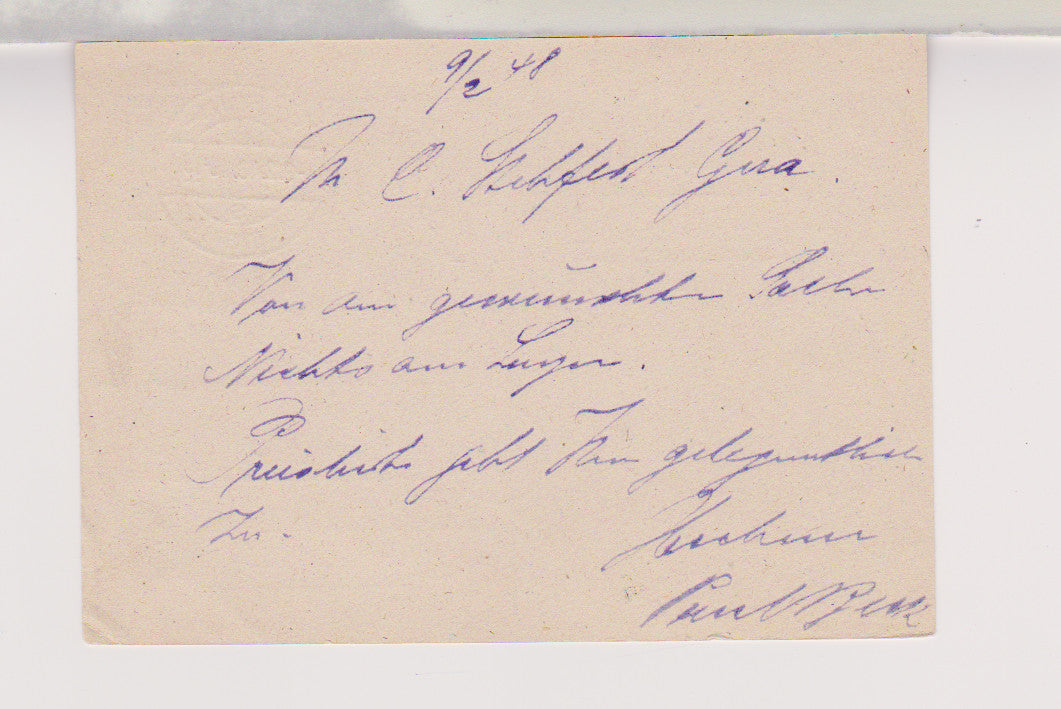 9/2 48
Fa C. Stehfest Gera.
Von den gewünschten Sachen
Nichts am Lager.
Preisliste geht Ihnen gelegentlich
zu.
Hochach
Paul Beck